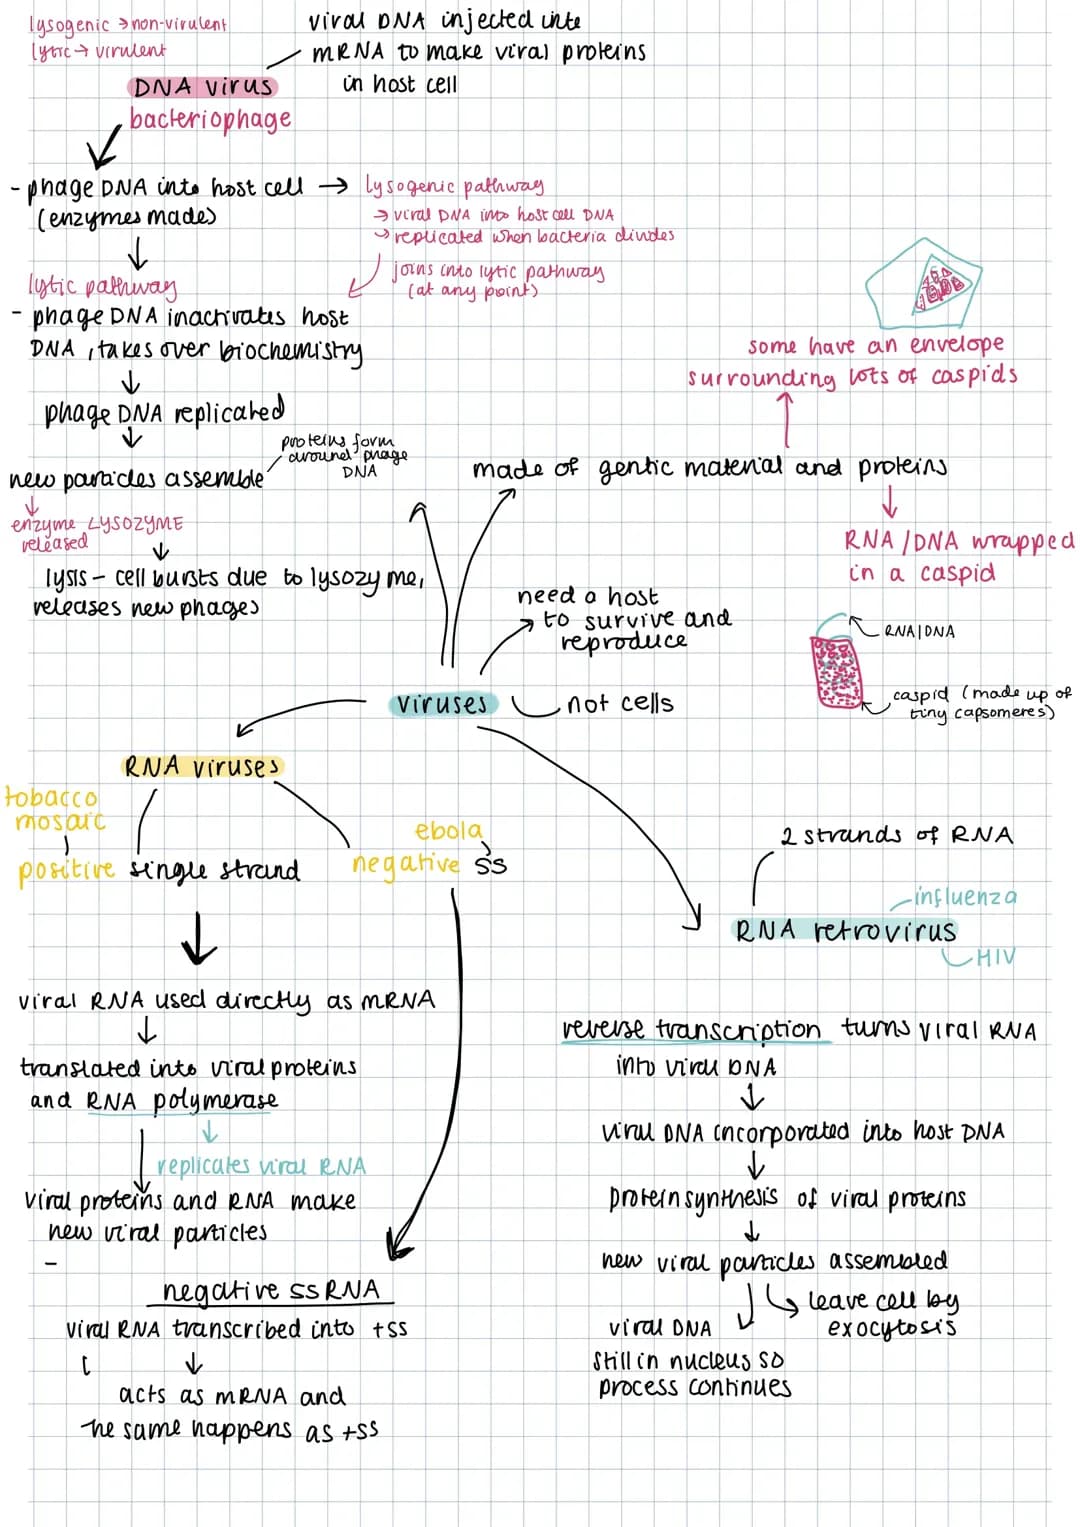 lysogenic → non-virulent
lytic → virulent
viral DNA injected into
mRNA to make viral proteins
in host cell
DNA virus
bacteriophage
- phage DNA into host cell → lysogenic pathway
(enzymes mades)
→ viral DNA into host cell DNA
→ replicated when bacteria divides
joins into lytic pathway
(at any point)
↓
lytic pathway
- phage DNA inactivates host
DNA, takes over biochemistry
↓
phage DNA replicated
↓
proteins form
around phage
DNA
new particles assemble
↓
enzyme LYSOZYME
released
↓
lysis – cell bursts due to lysozyme,
releases new phages
some have an envelope
surrounding lots of caspids
made of gentic material and proteins
RNA/DNA wrapped
in a caspid
RNA|DNA
caspid (made up of
tiny capsomeres)
need a host
to survive and
reproduce
viruses
not cells
RNA viruses
tobacco
mosaic
positive single strand
ebola
negative ss
viral RNA used directly as mRNA
↓
translated into viral proteins
and RNA polymerase
↓
replicates viral RNA
viral proteins and RNA make
new viral particles
-
negative ssRNA
viral RNA transcribed into +ss
↓
acts as mRNA and
the same happens as +ss
2 strands of RNA
influenza
RNA retrovirus
HIV
reverse transcription turns viral RNA
into viral DNA
↓
viral DNA incorporated into host DNA
↓
protein synthesis of viral proteins
↓
new viral particles assembled
leave cell by
exocytosis
viral DNA
still in nucleus so
process continues